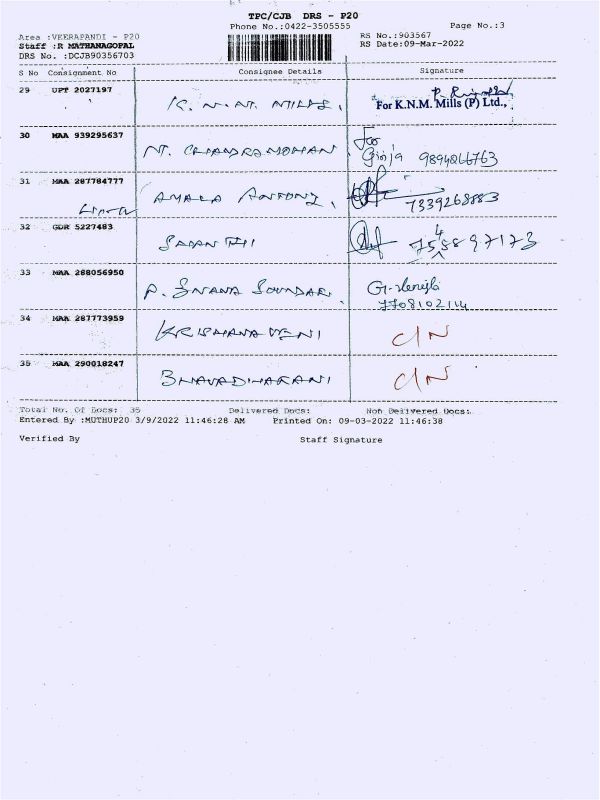 TPC/CJB DRS - P20
Phone No.:0422-3505555 Page No.:3
Area :VEERAPANDI - P20 RS No.:903567
Staff :R MATHANAGOPAL RS Date:09-Mar-2022
DRS No. :DCJB90356703
S No Consignment No Consignee Details Signature
29 UPT 2027197 K. N. M. MILLS. For K.N.M. Mills (P) Ltd.,
30 MAA 939295637 M. CHANDRAMOHAN For
Girija 9894266763
31 MAA 287784777 AMALA ANTONY. 7339268883
32 GDR 5227483 JAYANTHI 7548897173
33 MAA 288056950 P. GNANA SOUNDARI. 7708102114
34 MAA 287773959 KRISHANAVENI C/N
35 MAA 290018247 BHAVADHARANI C/N
Total No. Of Docs: 35 Delivered Docs: Non Delivered Docs:
Entered By :MUTHUP20 3/9/2022 11:46:28 AM Printed On: 09-03-2022 11:46:38
Verified By Staff Signature